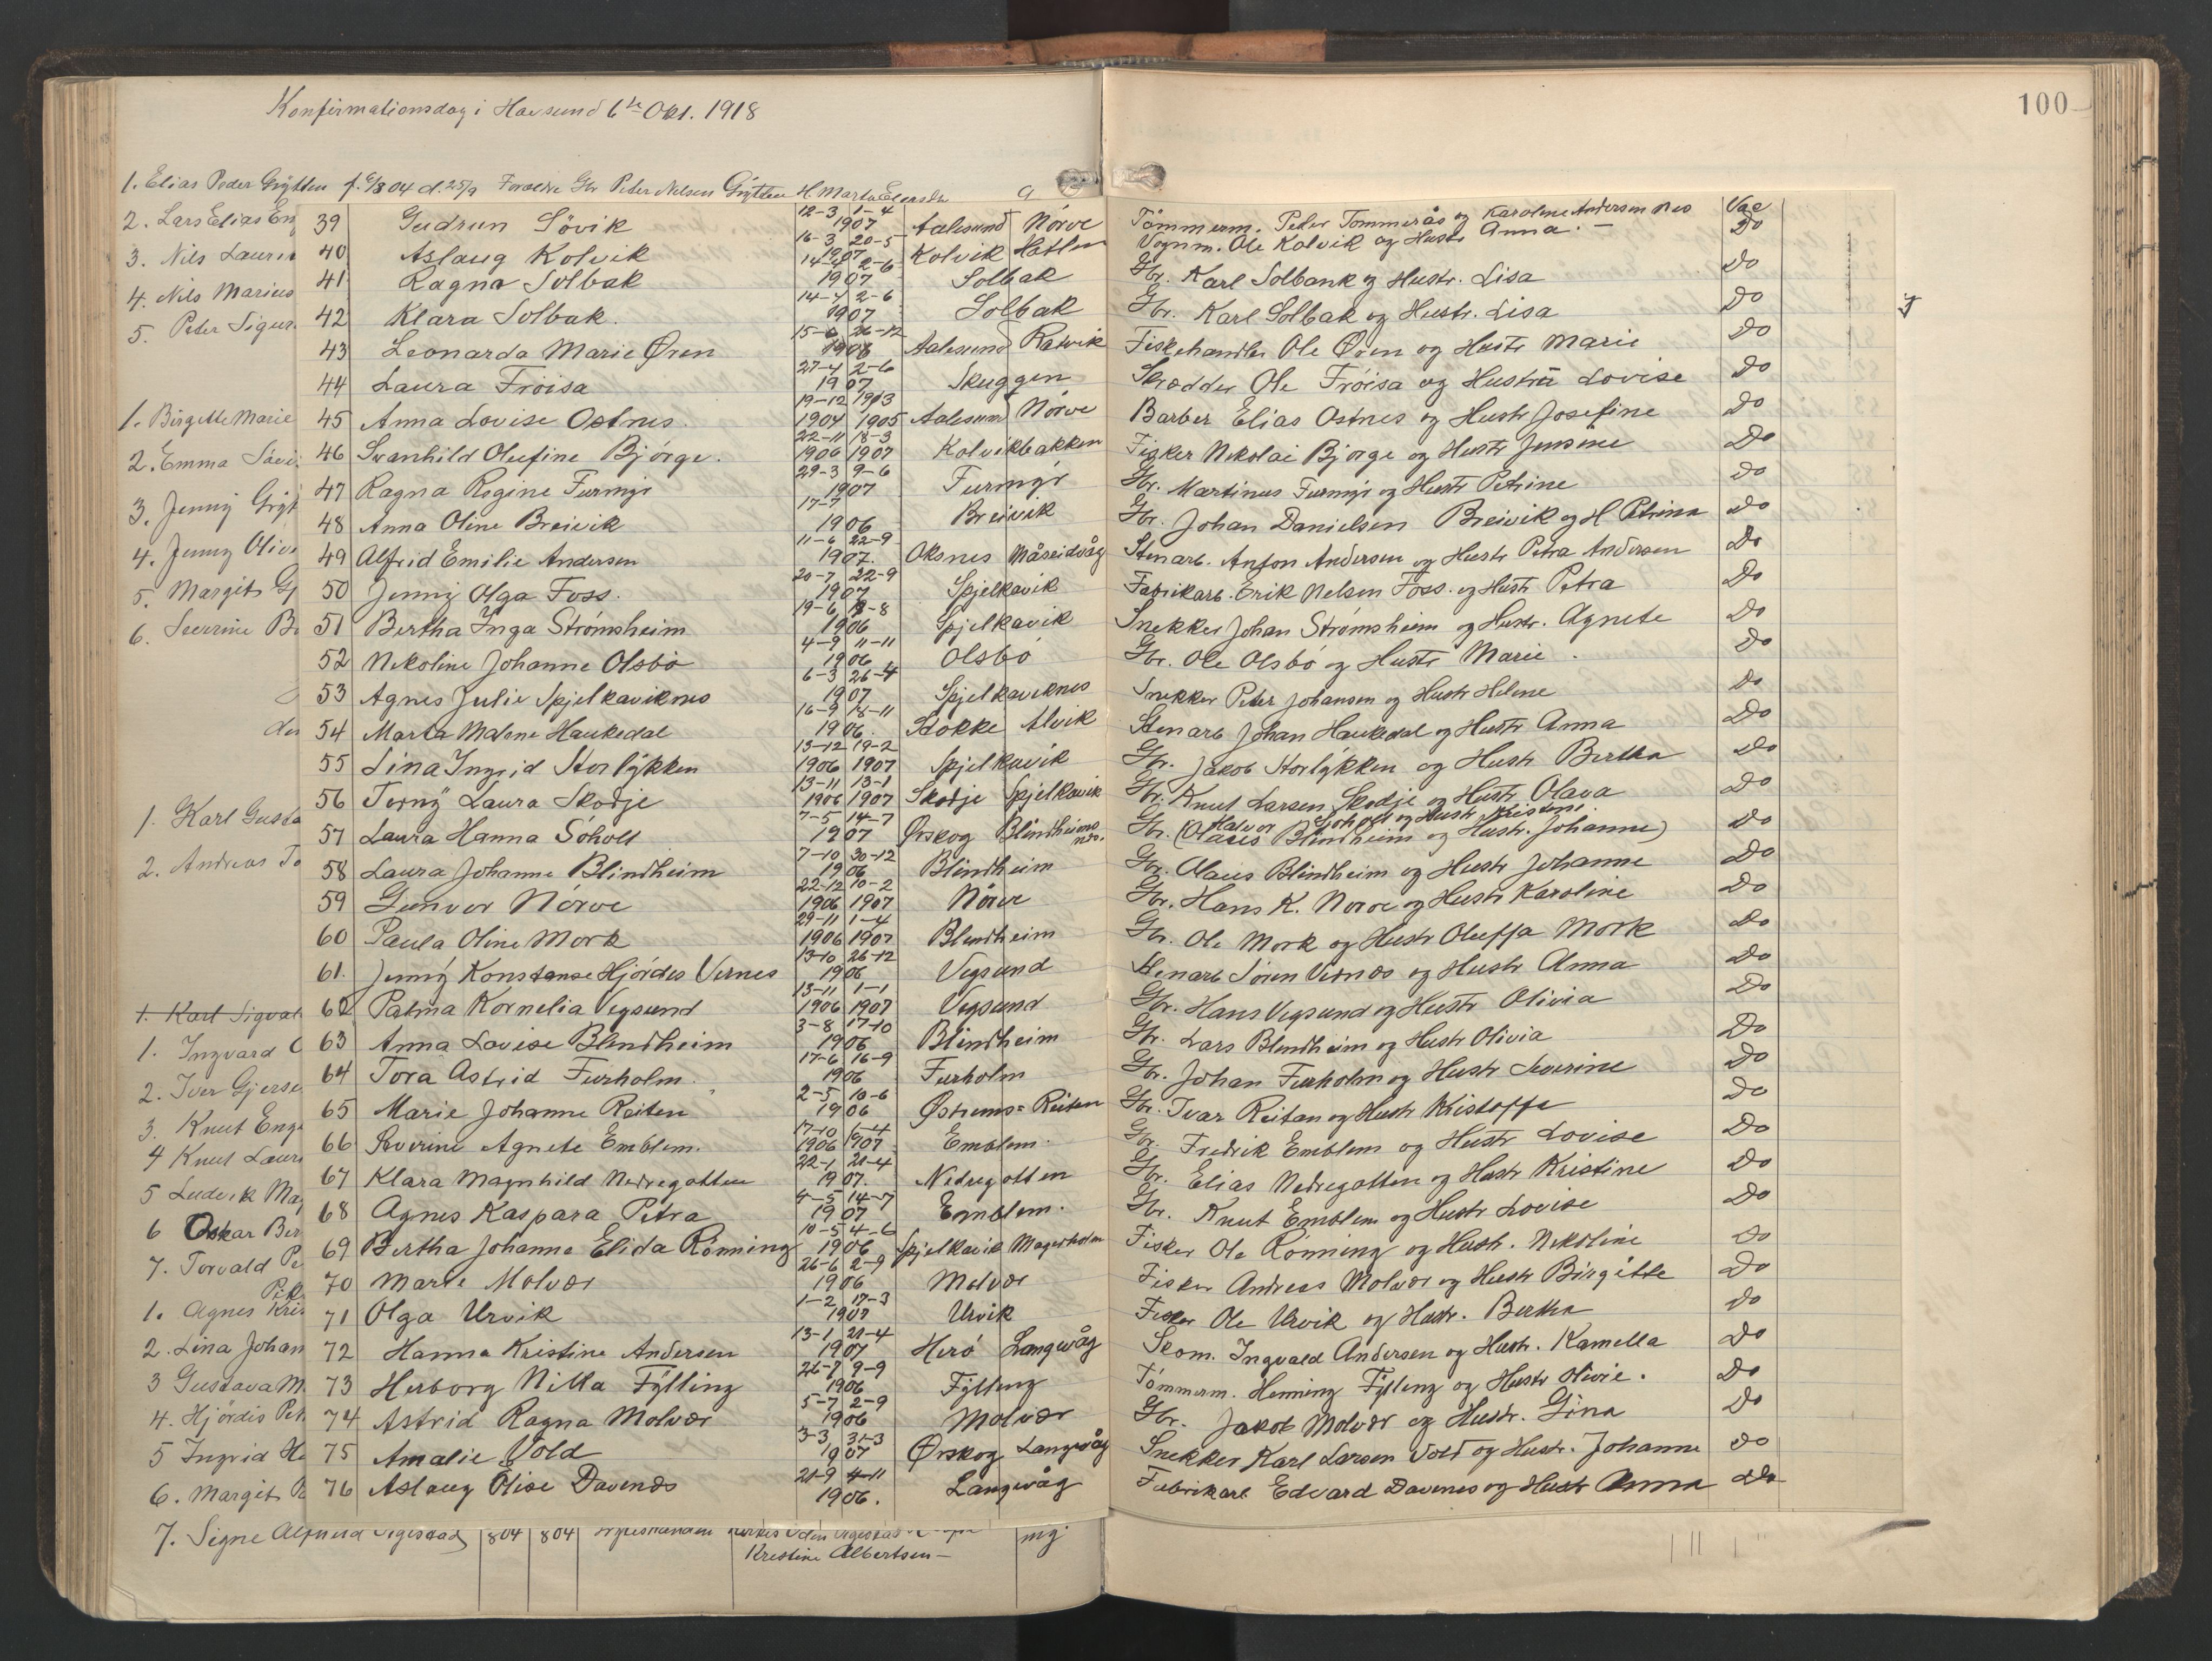 100
Konfirmationsdag i Havsund 6te Okt. 1918
1. Elias Peder Grytten f. 6/8 04 d. 25/9 Forældre Gbr Peter Nilsen Grytten H. Marta
2. Lars Elias
3. Nils Laurits
4. Nils Marius
5. Peter Sigur
1. Birgitte Marie
2. Emma Søvi
3. Jenny Gryt
4. Jenny Olivi
5. Margit G
6. Severine B
1. Karl Gusta
2. Andreas To
1. Karl Sigval
1. Ingvard
2. Iver Gjerse
3. Knut Enge
4 Knut Laur
5 Ludvik Mag
6 Oskar Ber
7. Torvald Pe
1. Agnes Kris
2. Lina Johan
3 Gustava M
4. Hjördis Pet
5 Ingrid Ha
6. Margit
39 Gudrun Sövik 12-3 1-4 1907 Aalesund Nörve Tömmerm. Peder Tommerås og Karoline Andersen Nes Vac
40 Aslaug Kolvik 16-3 20-5 1907 Kolvik Hatlen Vognm. Ole Kolvik og Hustr Anna. Do
41 Ragna Solbak 14-4 2-6 1907 Solbak Gbr. Karl Solbank og Hustr. Lisa Do
42 Klara Solbak. 14-4 2-6 1907 Solbak Gbr. Karl Solbak og Hustr. Lisa Do
43 Leonarda Marie Øren 15-6 26-12 1906 Aalesund Ratvik Fiskehandler Ole Øren og Hustr Marie Do
44 Laura Fröisa 27-4 2-6 1907 Skuggen Skrædder Ole Fröisa og Hustru Lovise Do
45 Anna Lovise Ostnes. 19-12 19/3 1904 1905 Aalesund Nörve Barber Elias Ostnes og Hustr Josefine Do
46 Svanhild Olufine Bjørge. 22-11 18-3 1906 1907 Kolvikbakken Fisker Nikolai Bjørge og Hustr Jensine Do
47 Ragna Regine Furmyr 29-3 9-6 1907 Furmyr Gbr. Martinus Furmyr og Hustr Petrine Do
48 Anna Oline Breivik 17-7 1906 Breivik Gbr. Johan Danielsen Breivik og H Petrina Do
49 Alfrid Emilie Andersen 11-6 22-9 1907. Oksnes Måseidvåg Stenarb. Anton Andersen og Hustr Petra Andersen Do
50 Jenny Olga Foss. 20-7 22-9 1907 Spjelkavik Fabrikarb. Erik Nelsen Foss. og Hustr Petra Do
51 Bertha Inga Strømsheim 19-6 12-8 1906 Spjelkavik Snekker Johan Strømsheim og Hustr. Agnete Do
52 Nekoline Johanne Olsbö 4-9 11-11 1906 Olsbö Gbr. Ole Olsbö og Hustr Marie. Do
53 Agnes Julie Spjelkaviknes 6-3 26-4 1907 Spjelkaviknes Snekker Peter Johansen og Hustr Helene Do
54 Marta Malene Haukedal 16-9 18-11 1906. Stokke Alvik Stenarb Johan Haukedal og Hustr Anna Do
55 Lina Ingrid Storlykken 13-12 19-2 1906 1907 Spjelkavik Gbr. Jakob Storlykken og Hustr Bertha Do
56 Torny Laura Skodje 13-11 13-1 1906 1907 Skodje Spjelkavik Gbr. Knut Larsen Skodje og Hustr Olava Do
Halvor Søholt og Hustr Kristine.
57 Laura Hanna Söholt 7-5 14-7 1907 Ørskog Blindheimsnes. Gbr. (Olaus Blindheim og Hustr. Johanne) Do
58 Laura Johanne Blindheim 7-10 30-12 1906 Blindheim Gbr. Olaus Blindheim og Hustr Johanne Do
59 Gunvor Nörve 22-12 10-2 1906 1907 Nörve Gbr. Hans K. Nörve og Hustr Karoline Do
60 Paula Oline Mork 29-11 1-4 1906 1907 Blindheim Gbr. Ole Mork og Hustr Oluffa Mork Do
61. Jenny Konstanse Hjördis Vernes 13-10 26-12 1906 Vegsund Stenarb Sören Vernes og Hustr Anna Do
62 Palma Kornelia Vegsund 13-11 1-1 1906 1907 Vegsund Gbr. Hans Vegsund og Hustr Olivia Do
63 Anna Lovise Blindheim 3-8 17-10 1906 Blindheim Gbr. Lars Blindheim og Hustr Olivia Do
64 Tora Astrid Furholm. 17-6 16-9 1906 Furholm Gbr. Johan Furholm og Hustr Severine Do
65 Marie Johanne Reiten 2-5 10-6 1906 Østrems= Reiten Gbr. Ivar Reitan og Hustr Kristoffa Do
66 Severine Agnete Emblem. 17-10 1-4 1906 1907 Emblem. Gbr. Fredrik Emblem og Hustr Lovise Do
67 Klara Magnhild Nedregotten 22-1 21-4 1907. Nedregotten Gbr. Elias Nedregotten og Hustr Kristine Do
68 Agnes Kaspara Petra 4-5 14-7 1907 Emblem. Gbr. Knut Emblem og Hustr Lovise Do
69 Bertha Johanne Elida Rönning 10-5 4-6 1906 Spjelkavik Magerholm Fisker Ole Rönning og Hustr. Nikoline Do
70 Marie Molvær 26-6 2-9 1906 Molvær Fisker Andreas Molvær og Hustr Birgitte Do
71 Olga Urvik 1-2 17-3 1907 Urvik Fisker Ole Urvik og Hustr. Bertha Do
72 Hanna Kristine Andersen 13-1 21-4 1907 Herö Langevåg Skom. Ingvald Andersen og Hustr. Kamella Do
73 Herborg Nikka Fylling 26-7 9-9 1906 Fylling Tömmerm. Henning Fylling og Hustr Olivie. Do
74 Astrid Ragna Molvær 5-7 2-9 1906 Molvær Gbr. Jakob Molvær og Hustr. Gina Do
75 Amalie Vold 3-3 31-3 1907 Ørskog Langevåg Snekker Karl Larsen Vold og Hustr. Johanne Do
76 Aslaug Olise Davenes 21-9 4-11 1906. Langevåg Fabrikarb Edvard Davenes og Hustr Anna Do
7. Signe 804 804
Kristine Albertsen